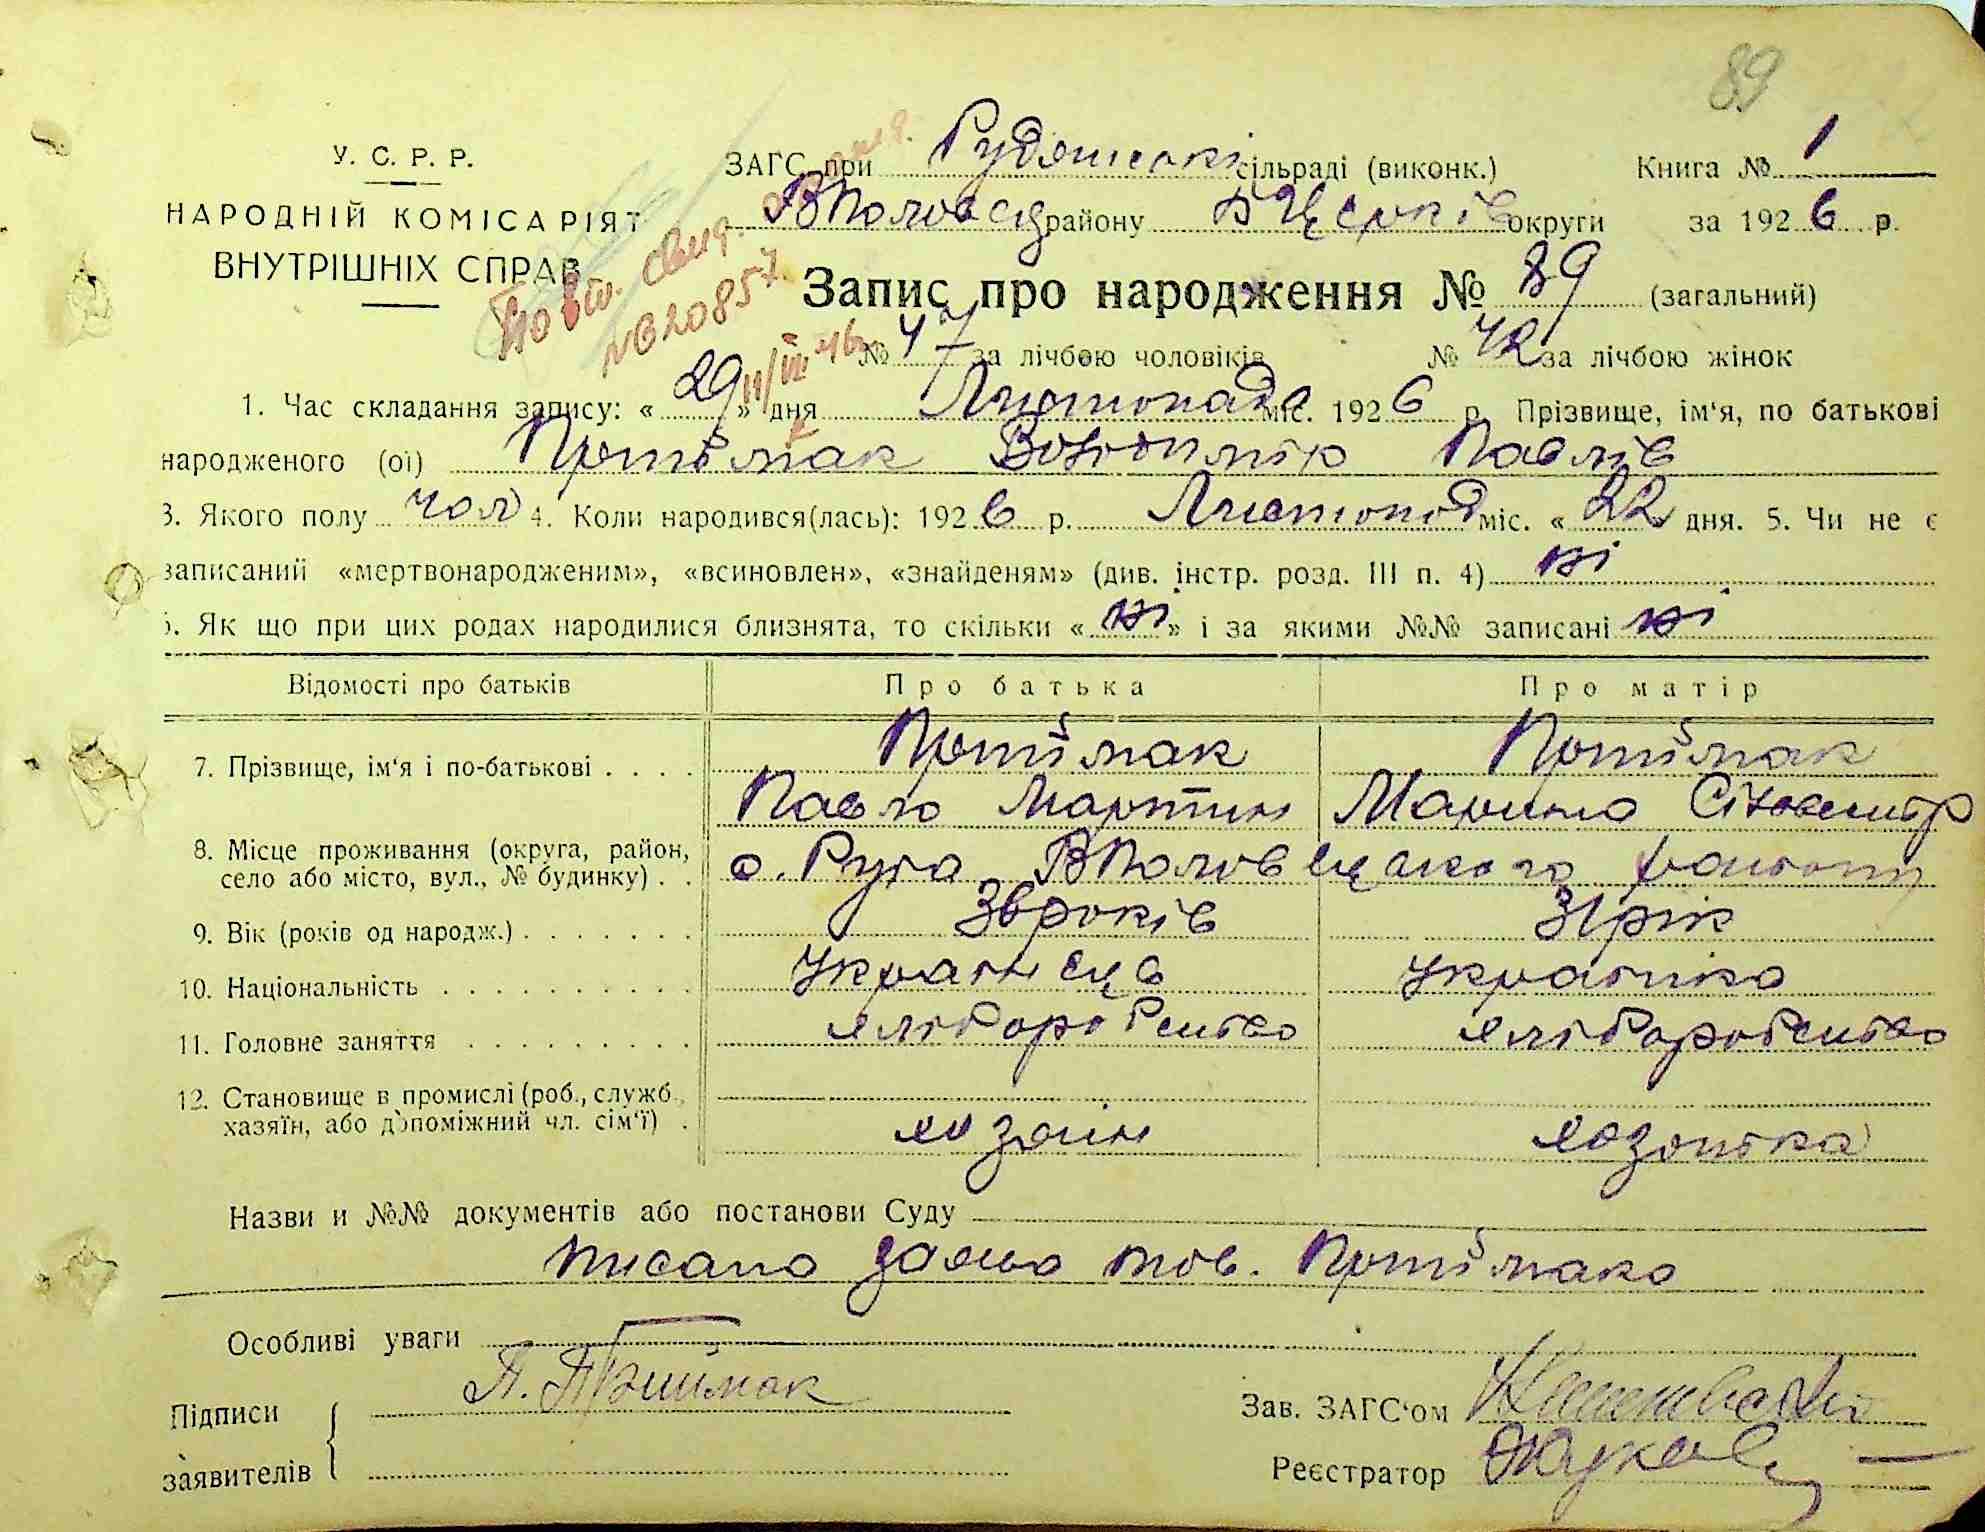 89
У. С. Р. Р.
НАРОДНІЙ КОМІСАРІЯТ
ВНУТРІШНІХ СПРАВ
ЗАГС при сільраді (виконк.) Книга № 1
ВПоловец району БЦерків округи за 1926 р.
Повт. свид.
№ 20857
11/VII 46
Запис про народження № 89 (загальний)
№ 47 за лічбою чоловіків № 42 за лічбою жінок
1. Час складання запису: « 29 » дня Листопада міс. 1926 р. Прізвище, ім‘я, по батькові
народженого (ої) Приймак Володимір Павлів
3. Якого полу чол 4. Коли народився(лась): 1926 р. Листопад міс. « 22 дня. 5. Чи не є
записаний «мертвонародженим», «всиновлен», «знайденям» (див. інстр. розд. III п. 4) ні
6. Як що при цих родах народилися близнята, то скільки « ні » і за якими №№ записані ні
Відомості про батьків Про батька Про матір
7. Прізвище, ім‘я і по-батькові Приймак Приймак
Павло Мартин Марина Сільвестр
8. Місце проживання (округа, район,
село або місто, вул., № будинку) с. Рута ВПоловецького району
9. Вік (років од народж.) 36 років 31 рік
10. Національність Українець Українка
11. Головне заняття хліборобство хліборобство
12. Становище в промислі (роб., служб.,
хазяїн, або допоміжний чл. сім‘ї) хозяін хозяйка
Назви и №№ документів або постанови Суду
Писано заяво тов. Приймака
Особливі уваги
Підписи П. Приймак Зав. ЗАГС‘ом
заявителів Реєстратор